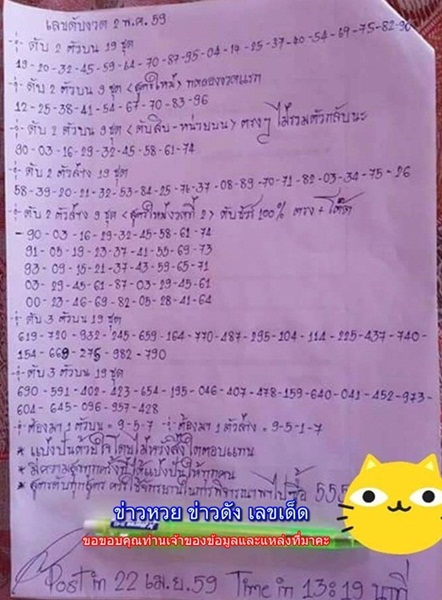 เลขดับงวด 2 พ.ค. 59
-:- ดับ 2 ตัวบน 19 ชุด
19-20-32-45-59-64-70-87-95-04-14-25-37-40-54-69-75-82-90
-:- ดับ 2 ตัวบน 9 ชุด (สูตรใหม่) ทดลองงวดแรก
12-25-38-41-54-67-70-83-96
-:- ดับ 2 ตัวบน 9 ชุด (ดับสิบ-หน่วยบน) ตรงๆ ไม่รวมตัวกลับนะ
90-03-16-29-32-45-58-61-74
-:- ดับ 2 ตัวล่าง 19 ชุด
58-39-20-21-32-53-84-25-76-37-08-89-70-71-82-03-34-75-26
-:- ดับ 2 ตัวล่าง 9 ชุด (สูตรใหม่งวดที่ 2) ดับชัวร์ 100% ตรง + โต๊ด
-90-03-16-29-32-45-58-61-74
91-05-19-23-37-41-55-69-73
93-09-15-21-37-43-59-65-71
03-29-45-61-87-03-29-45-61
00-23-46-69-82-05-28-41-64
-:- ดับ 3 ตัวบน 19 ชุด
619-720-932-245-659-164-770-487-295-204-114-225-437-740-
154-669-276-982-790
-:- ดับ 3 ตัวบน 19 ชุด
690-591-402-423-654-195-046-407-478-159-640-041-452-973-
604-645-096-957-428
-:- ต้องมา 1 ตัวบน = 9-5-7 -:- ต้องมา 1 ตัวล่าง = 9-5-1-7
* แบ่งปันด้วยใจโดยไม่หวังสิ่งใดตอบแทน
* มีความสุขทุกครั้งที่ได้แบ่งปันให้ทุกคน
* สูตรดับทุกสูตร ควรใช้วิจารณญาณในการพิจารณา ไปซื้อ 555
ข่าวหวย ข่าวดัง เลขเด็ด
ขอขอบคุณท่านเจ้าของข้อมูลและแหล่งที่มาคะ
Post in 22 เม.ย. 59 Time in 13:19 นาที